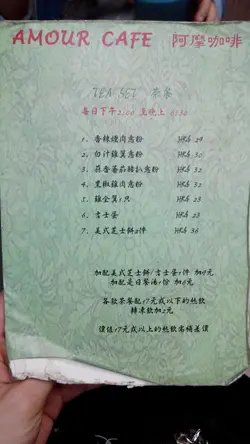 AMOUR CAFE 阿摩咖啡
TEA SET 茶餐
每日下午2:00 至晚上 6:30
1. 香辣燻肉意粉 HK$ 29
2. 白汁雞翼意粉 HK$ 30
3. 蒜香蕃茄豬扒意粉 HK$ 32
4. 黑椒雞肉意粉 HK$ 30
5. 雞全翼1只 HK$ 23
6. 吉士蛋 HK$ 23
7. 美式芝士餅2件 HK$ 36
加配美式芝士餅/吉士蛋1件 加9元
加配是日餐湯1份 加8元
各款茶餐配17元或以下的熱飲
轉凍飲加2元
價值17元或以上的熱飲需補差價